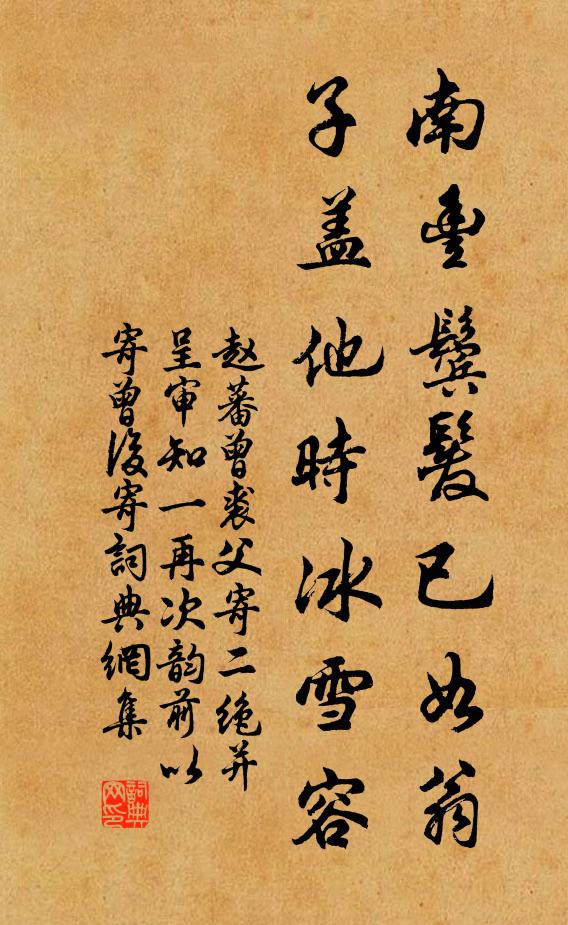 南豊鬓髮已如翁
子盖他時冰雪容
赵蕃曾裘父寄二绝并
呈审知一再次韵前以
寄曾後寄詞典網集
詞典網印